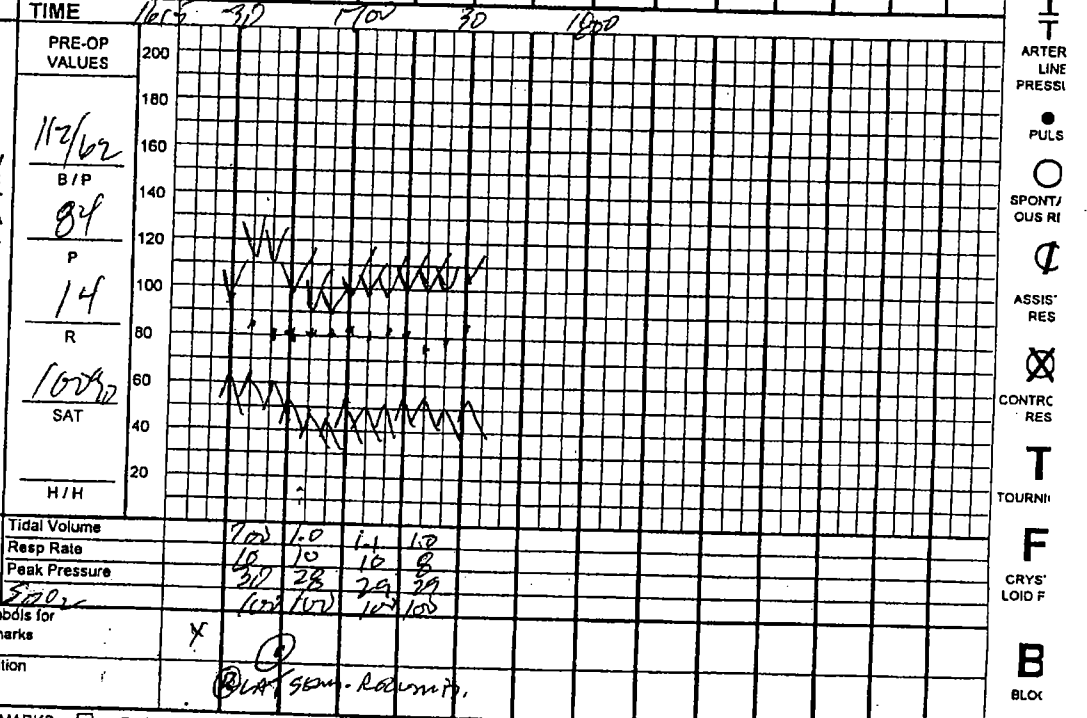 TIME 30 1700 30 1800
PRE-OP
VALUES
112/62
B / P
84
P
14
R
100%
SAT
H / H
200
180
160
140
120
100
80
60
40
20
Tidal Volume 700 1.0 1.1 1.0
Resp Rate 10 10 10 8
Peak Pressure 30 28 29 29
100 100 100 100
X
ARTER
LINE
PRESSU
PULS
SPONTA
OUS RE
ASSIS
RES
CONTRO
RES
T
TOURNI
F
CRYS
LOID F
B
BLOC